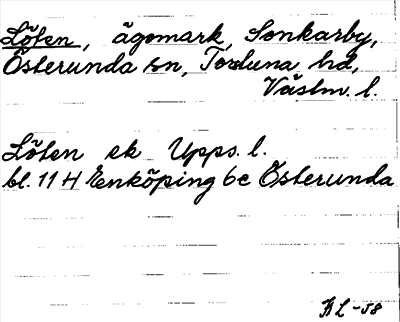 Löten, ägomark, Sonkarby,
Österunda sn, Torstuna hd,
Västm. l.
Löten ek Upps. l.
bl. 114 Enköping 6e Österunda
KL-58